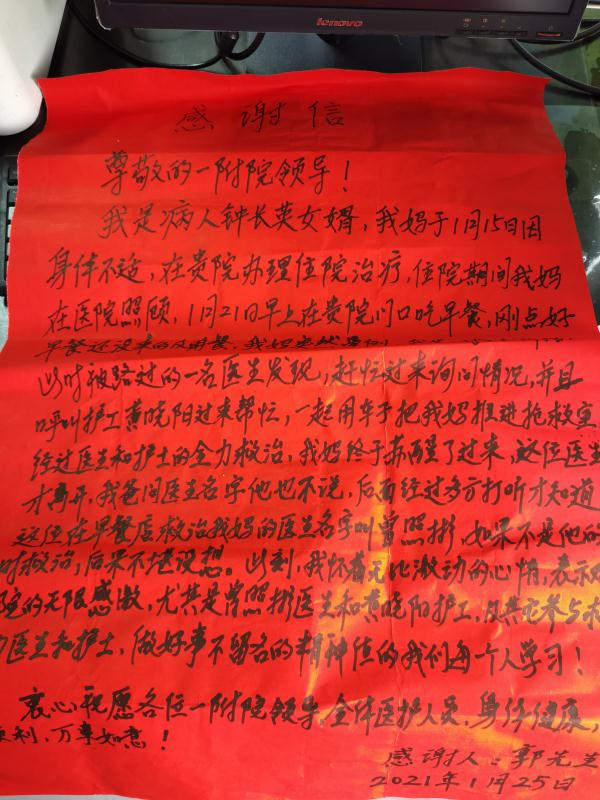 lenovo
感谢信
尊敬的一附院领导！
我是病人钟长英女婿，我妈于1月15日因
身体不适，在贵院办理住院治疗，住院期间我妈
在医院照顾，1月21日早上在贵院门口吃早餐，刚点好
早餐还没来的及用餐，我妈突然晕倒
此时被路过的一名医生发现，赶忙过来询问情况，并且
呼叫护工黄晓阳过来帮忙，一起用车子把我妈推进抢救室
经过医生和护士的全力救治，我妈终于苏醒了过来，这位医生
才离开，我爸问医生名字他也不说，后面经过多方打听才知道
这位在早餐店救治我妈的医生名字叫曾照彬，如果不是他的
时救治，后果不堪设想。此刻，我怀着无比激动的心情，表示对
院的无限感激，尤其是曾照彬医生和黄晓阳护工，及其它参与抢
的医生和护士，做好事不留名的精神值的我们每一个人学习！
衷心祝愿各位一附院领导，全体医护人员，身体健康，
顺利，万事如意！
感谢人：郭先生
2021年1月25日